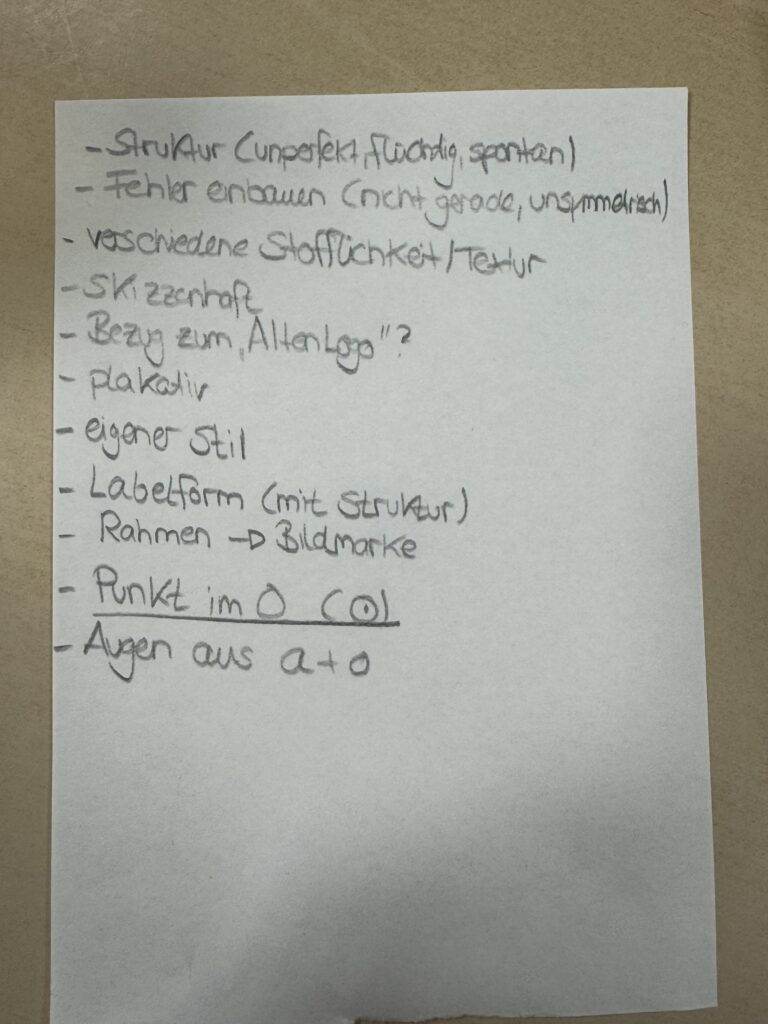 - Struktur (unperfekt, flüchtig, spontan)
- Fehler einbauen (nicht gerade, unsymmetrisch)
- verschiedene Stofflichkeit/Textur
- Skizzenhaft
- Bezug zum „Alten Logo"?
- plakativ
- eigener Stil
- Labelform (mit Struktur)
- Rahmen → Bildmarke
- Punkt im O (⊙)
- Augen aus a+o